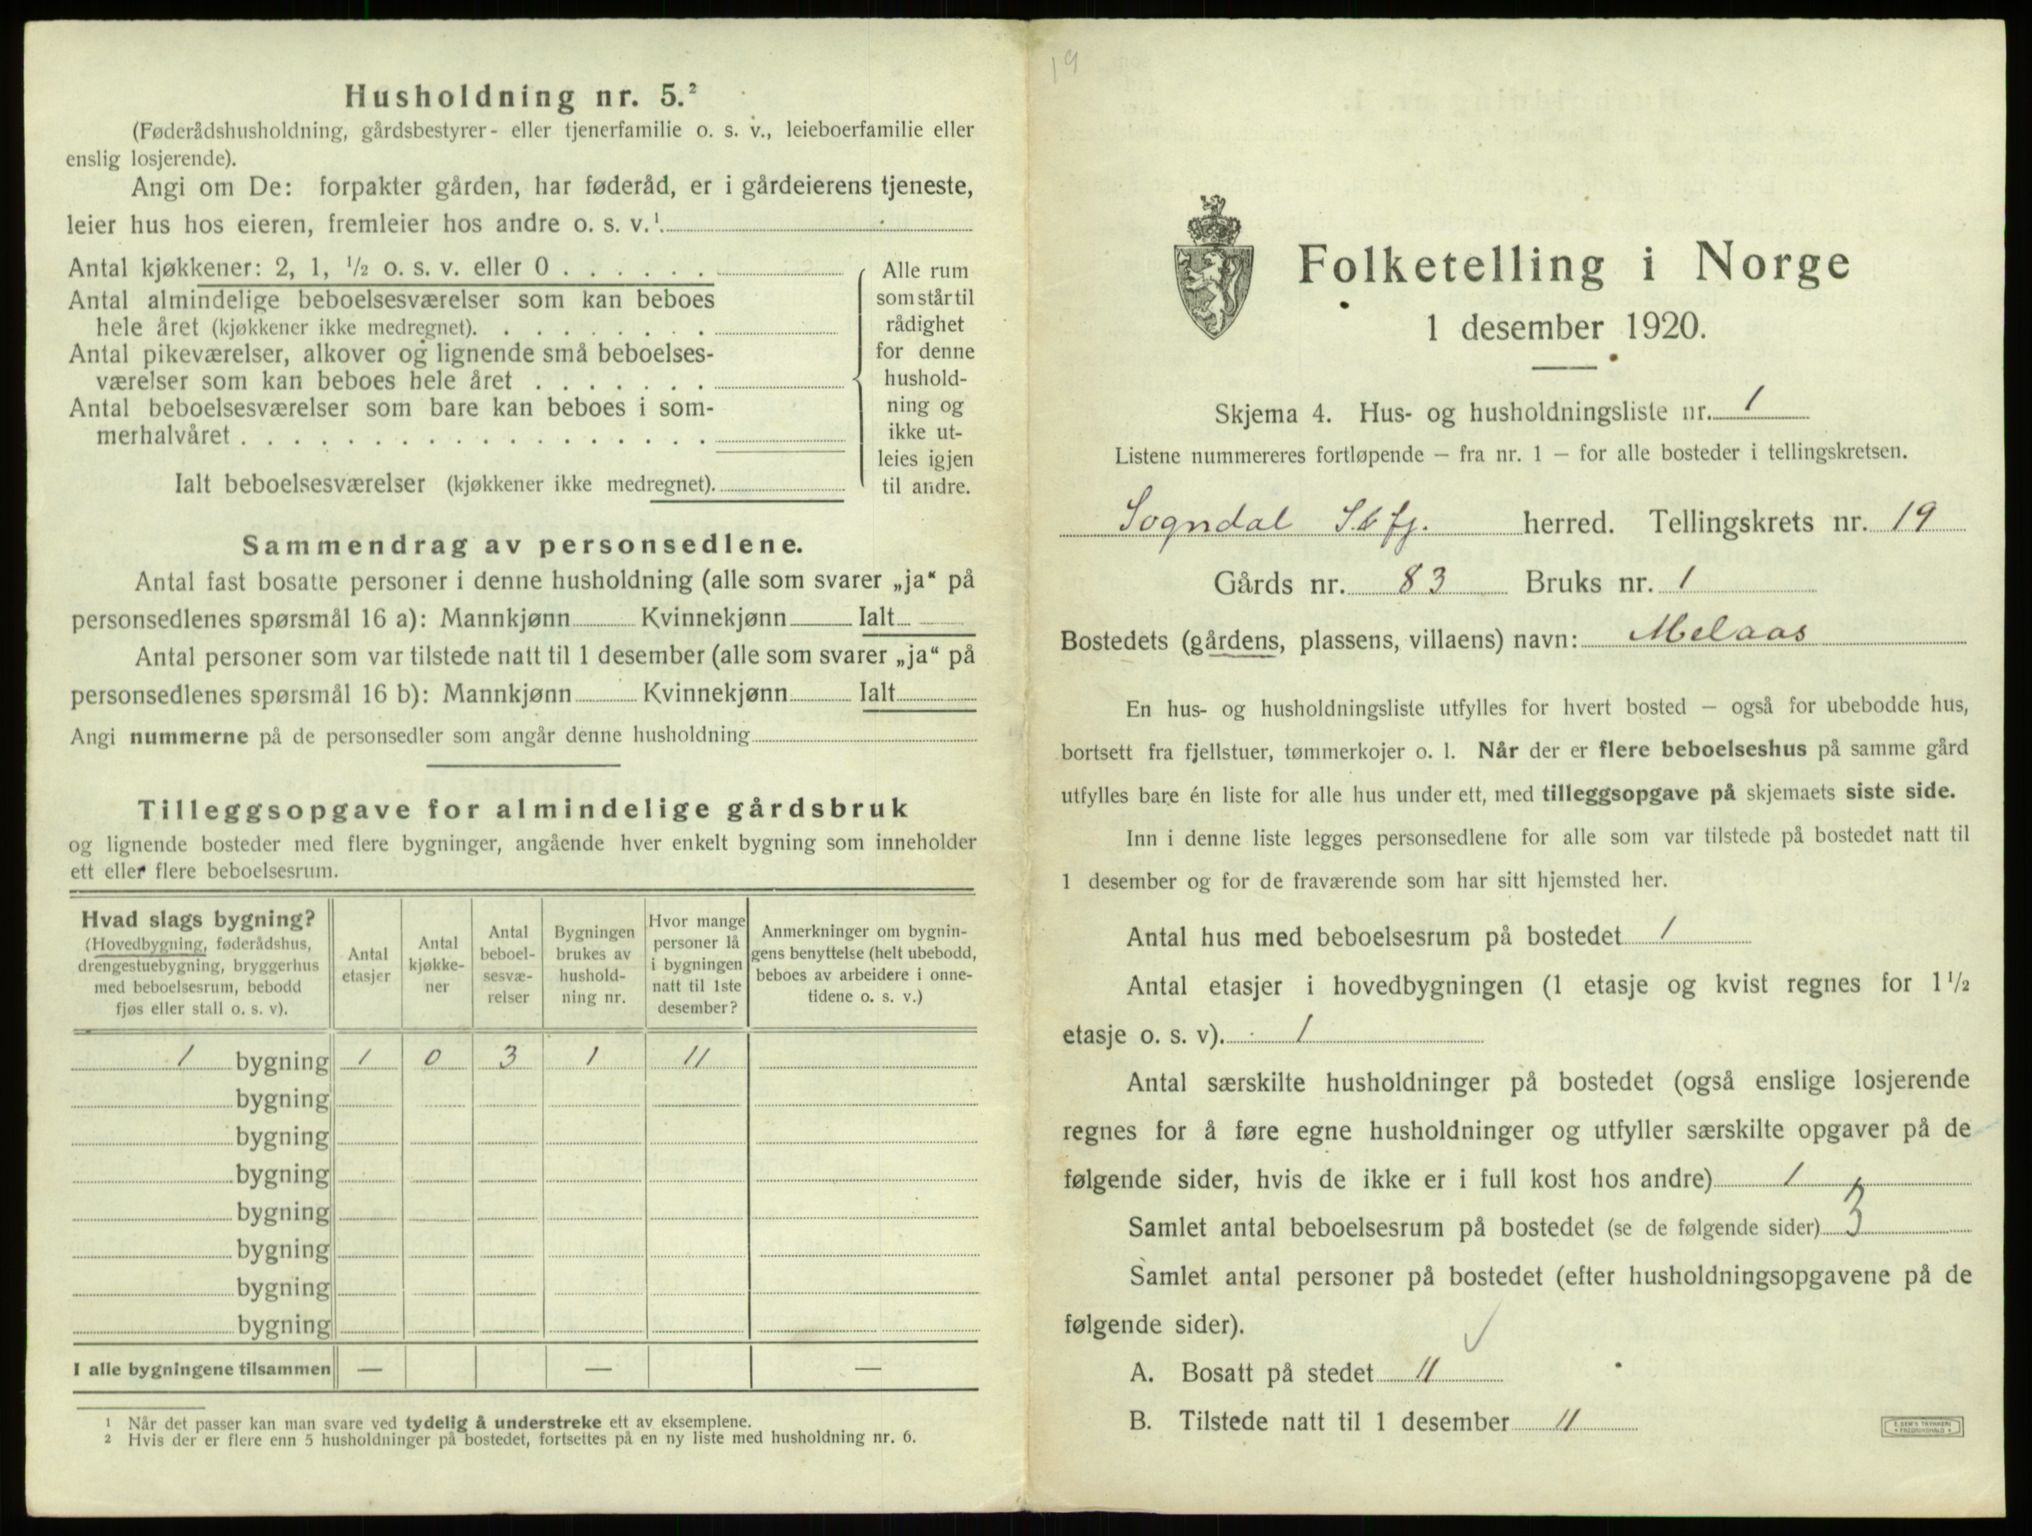 Husholdning nr. 5.²
(Føderådshusholdning, gårdsbestyrer- eller tjenerfamilie o. s. v., leieboerfamilie eller
enslig losjerende).
Angi om De: forpakter gården, har føderåd, er i gårdeierens tjeneste,
leier hus hos eieren, fremleier hos andre o. s. v.¹
Antal kjøkkener: 2, 1, ½ o. s. v. eller 0 . . . . . .
Antal almindelige beboelsesværelser som kan beboes
hele året (kjøkkener ikke medregnet). . . . . . . . .
Antal pikeværelser, alkover og lignende små beboelses-
værelser som kan beboes hele året . . . . . . .
Antal beboelsesværelser som bare kan beboes i som-
merhalvåret . . . . . . . . . . . . . . . . . .
Ialt beboelsesværelser (kjøkkener ikke medregnet).
Alle rum
som står til
rådighet
for denne
hushold-
ning og
ikke ut-
leies igjen
til andre.
Sammendrag av personsedlene.
Antal fast bosatte personer i denne husholdning (alle som svarer „ja“ på
personsedlenes spørsmål 16 a): Mannkjønn Kvinnekjønn Ialt
Antal personer som var tilstede natt til 1 desember (alle som svarer „ja“ på
personsedlenes spørsmål 16 b): Mannkjønn Kvinnekjønn Ialt
Angi nummerne på de personsedler som angår denne husholdning
Tilleggsopgave for almindelige gårdsbruk
og lignende bosteder med flere bygninger, angående hver enkelt bygning som inneholder
ett eller flere beboelsesrum.
Hvad slags bygning?
(Hovedbygning, føderådshus,
drengestuebygning, bryggerhus
med beboelsesrum, bebodd
fjøs eller stall o. s. v).
Antal
etasjer
Antal
kjøkke-
ner
Antal
beboel-
sesvæ-
relser
Bygningen
brukes av
hushold-
ning nr.
Hvor mange
personer lå
i bygningen
natt til 1ste
desember?
Anmerkninger om bygnin-
gens benyttelse (helt ubebodd,
beboes av arbeidere i onne-
tidene o. s. v.)
1 bygning 1 0 3 1 11
bygning
bygning
bygning
bygning
bygning
bygning
bygning
I alle bygningene tilsammen — — —
¹ Når det passer kan man svare ved tydelig å understreke ett av eksemplene.
² Hvis der er flere enn 5 husholdninger på bostedet, fortsettes på en ny liste med husholdning nr. 6.
19
Folketelling i Norge
1 desember 1920.
Skjema 4. Hus- og husholdningsliste nr. 1
Listene nummereres fortløpende – fra nr. 1 – for alle bosteder i tellingskretsen.
Sogndal S&fj. herred. Tellingskrets nr. 19
Gårds nr. 83 Bruks nr. 1
Bostedets (gårdens, plassens, villaens) navn: Melaas
En hus- og husholdningsliste utfylles for hvert bosted – også for ubebodde hus,
bortsett fra fjellstuer, tømmerkojer o. l. Når der er flere beboelseshus på samme gård
utfylles bare én liste for alle hus under ett, med tilleggsopgave på skjemaets siste side.
Inn i denne liste legges personsedlene for alle som var tilstede på bostedet natt til
1 desember og for de fraværende som har sitt hjemsted her.
Antal hus med beboelsesrum på bostedet 1
Antal etasjer i hovedbygningen (1 etasje og kvist regnes for 1½
etasje o. s. v). 1
Antal særskilte husholdninger på bostedet (også enslige losjerende
regnes for å føre egne husholdninger og utfyller særskilte opgaver på de
følgende sider, hvis de ikke er i full kost hos andre) 1
Samlet antal beboelsesrum på bostedet (se de følgende sider) 3
Samlet antal personer på bostedet (efter husholdningsopgavene på de
følgende sider).
A. Bosatt på stedet 11
B. Tilstede natt til 1 desember 11